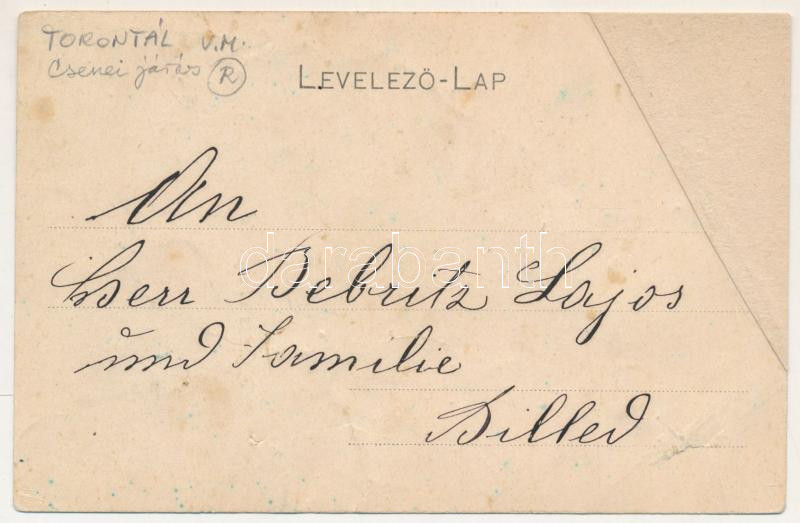 TORONTÁL V.M.
Csenei járás R
LEVELEZŐ-LAP
An
Herr Bebritz Lajos
und Familie
Billed
darabanth